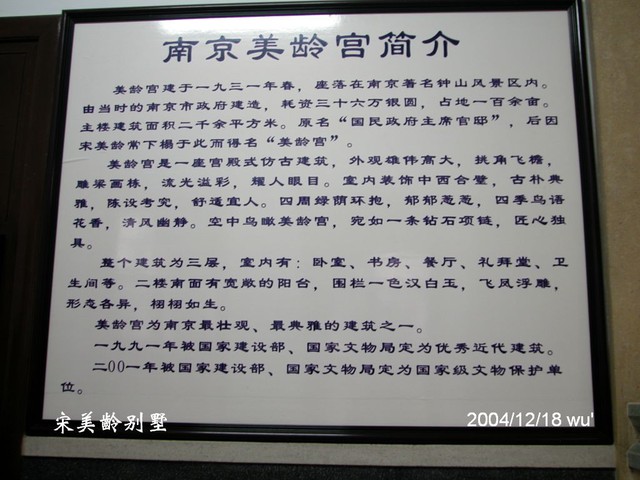 南京美龄宫简介
美龄宫建于一九三一年春，座落在南京著名钟山风景区内。
由当时的南京市政府建造，耗资三十六万银圆，占地一百余亩。
主楼建筑面积二千余平方米。原名“国民政府主席官邸”，后因
宋美龄常下榻于此而得名“美龄宫”。
美龄宫是一座宫殿式仿古建筑，外观雄伟高大，挑角飞檐，
雕梁画栋，流光溢彩，耀人眼目。室内装饰中西合璧，古朴典
雅，陈设考究，舒适宜人。四周绿荫环抱，郁郁葱葱，四季鸟语
花香，清风幽静。空中鸟瞰美龄宫，宛如一条钻石项链，匠心独
具。
整个建筑为三层，室内有：卧室、书房、餐厅、礼拜堂、卫
生间等。二楼南面有宽敞的阳台，围栏一色汉白玉，飞凤浮雕，
形态各异，栩栩如生。
美龄宫为南京最壮观、最典雅的建筑之一。
一九九一年被国家建设部、国家文物局定为优秀近代建筑。
二00一年被国家建设部、国家文物局定为国家级文物保护单
位。
宋美龄别墅
2004/12/18 wu'